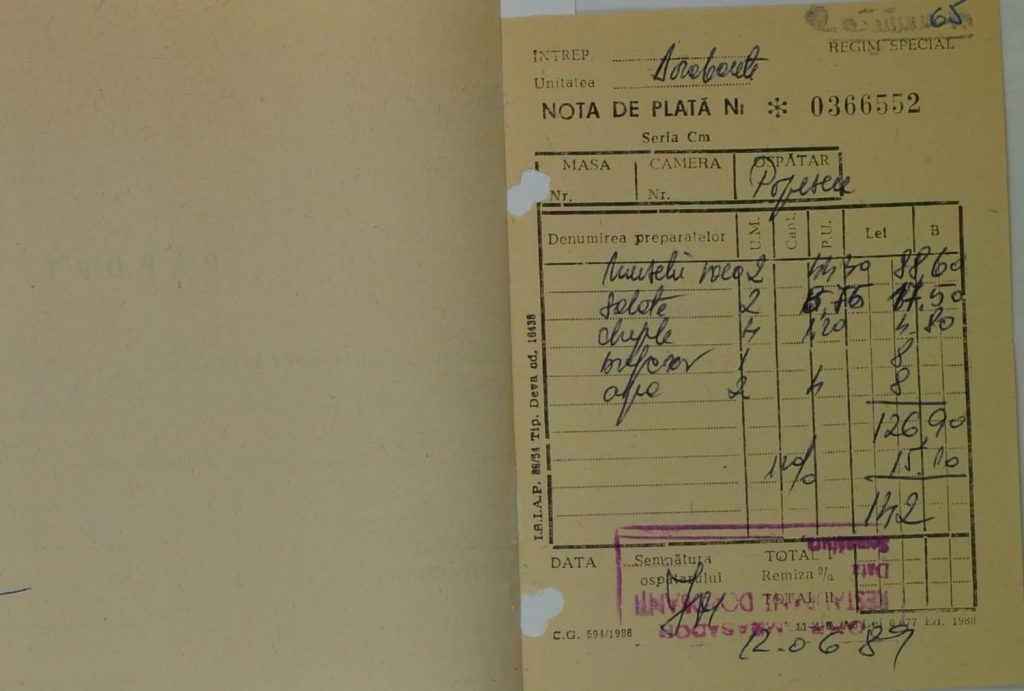 65
REGIM SPECIAL
INTREP.
Unitatea
NOTA DE PLATĂ Nr * 0366552
Seria Cm
MASA CAMERA OSPĂTAR
Nr. Nr. Popescu
Denumirea preparatelor U.M. Cant. P.U. Lei B
2 44 30 88,60
salate 2 17,50
chifle 4 1,20 4,80
1 8
apa 2 4 8
126,90
12% 15,10
142
DATA Semnătura ospătarului TOTAL I
Remiza %
TOTAL II
C.G. 594/1986
Ed. 1988
12.06.89
I.S.I.A.P. 86/54 Tip. Deva od. 16438
RAPORT